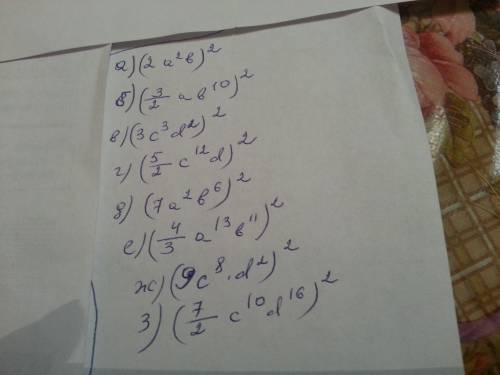 а) (2 a²b)²
б) (3/2 ab¹⁰)²
в) (3c³d²)²
г) (5/2 c¹²d)²
д) (7a²b⁶)²
е) (4/3 a¹³b¹¹)²
ж) (9c⁸·d²)²
з) (7/2 c¹⁰d¹⁶)²